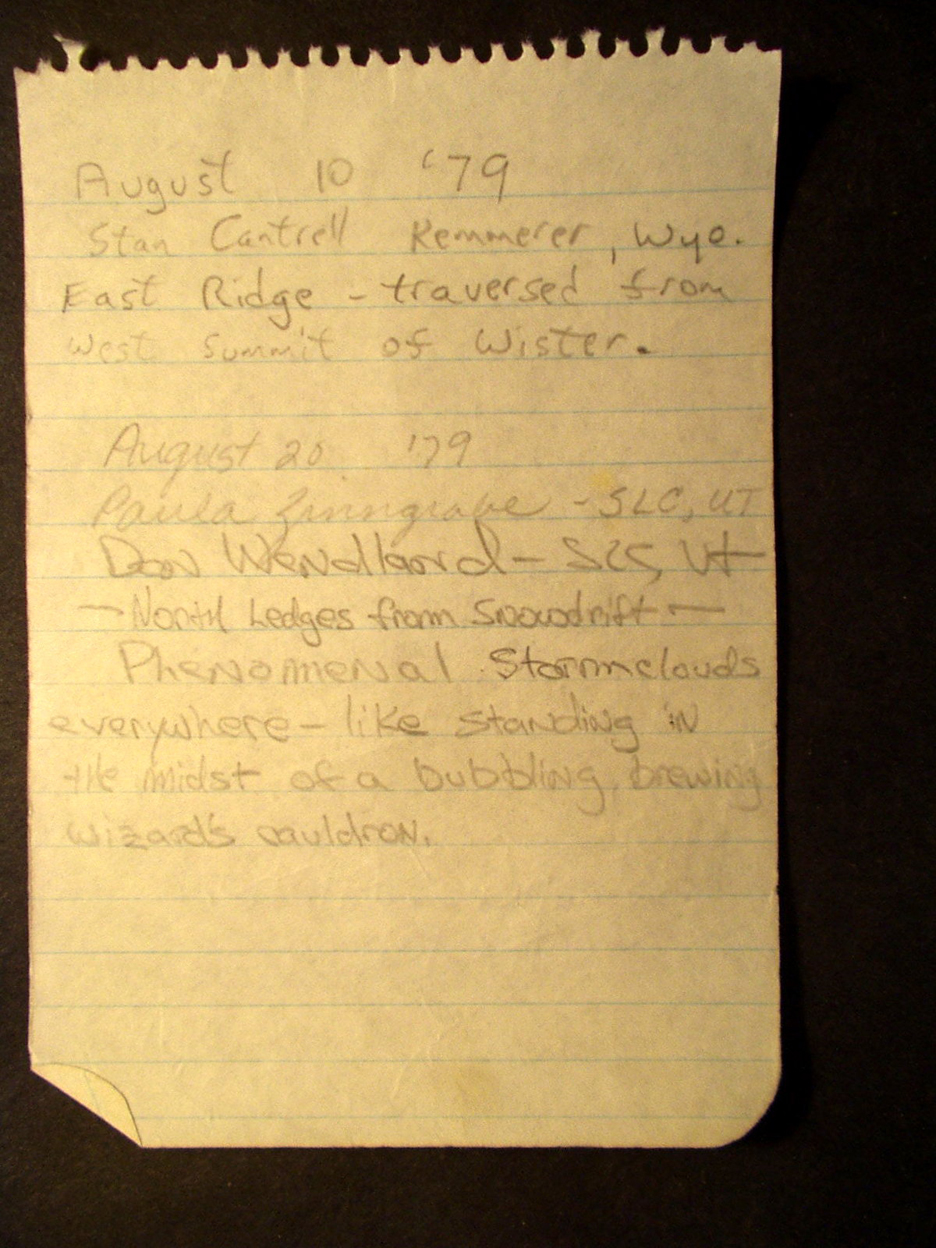 August 10 '79
Stan Cantrell Kemmerer, Wyo.
East Ridge - traversed from
west summit of Wister.
August 20 '79
Paula Zinngrabe - SLC, UT
Don Wendland - SLC, Ut
- North Ledges from Snowdrift -
Phenomenal Stormclouds
everywhere - like standing in
the midst of a bubbling, brewing
wizard's cauldron.